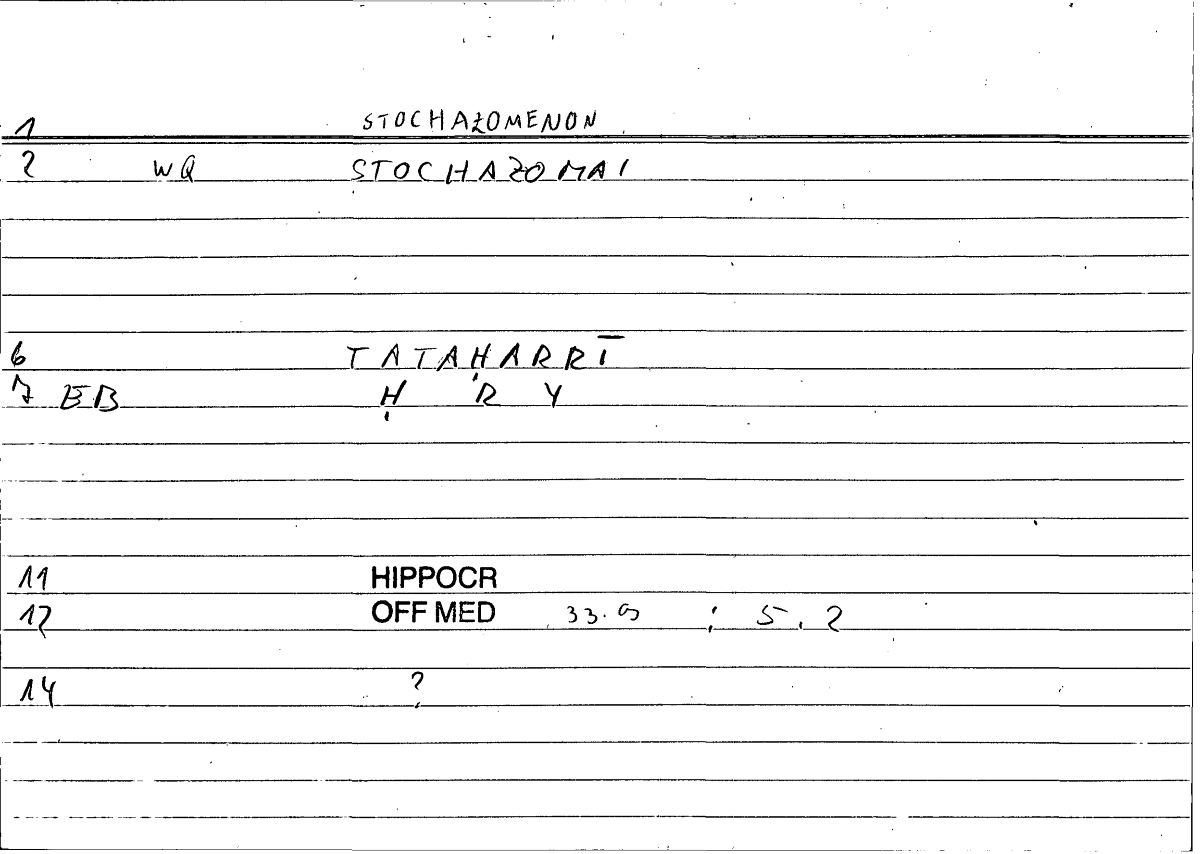 1 STOCHAZOMENON
2 WQ STOCHAZOMAI
6 TATAḤARRĪ
7 EB Ḥ R Y
11 HIPPOCR
12 OFF MED 33.9 ; 5.2
14 ?